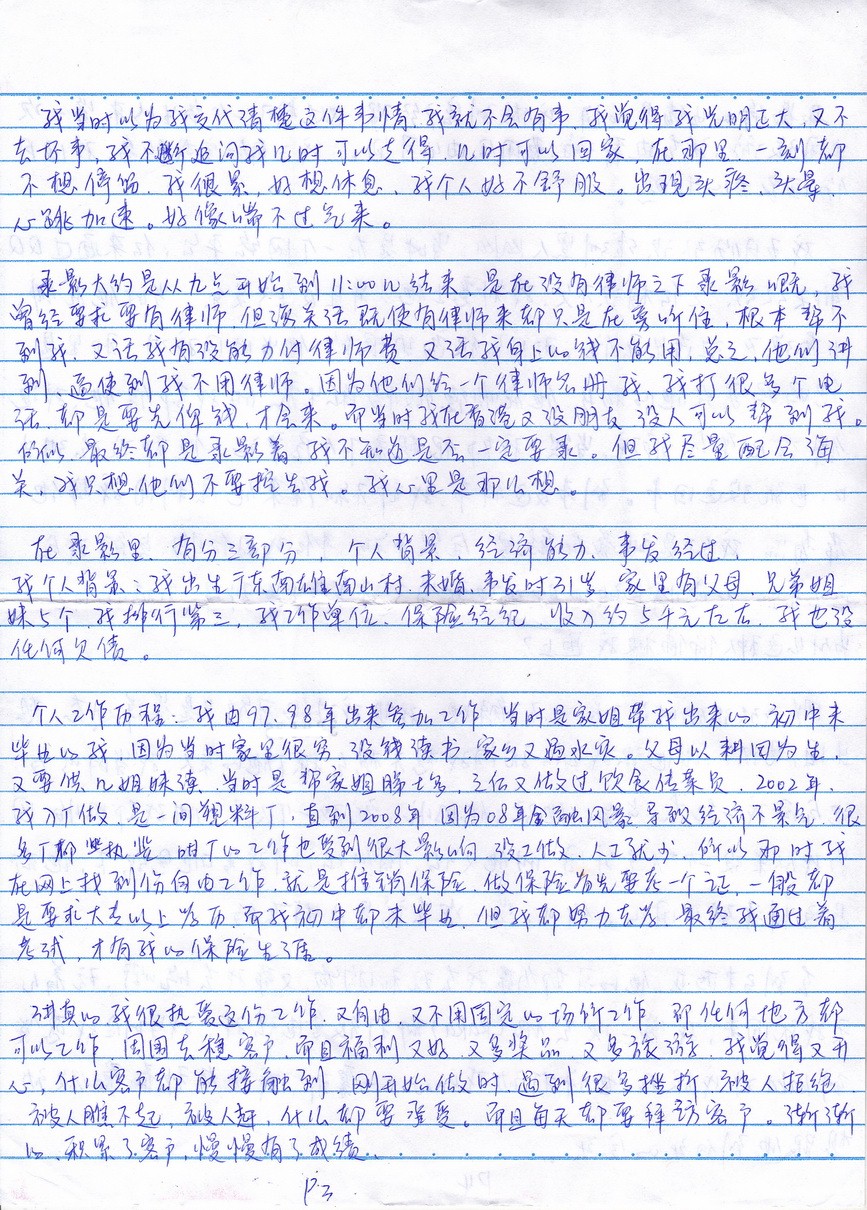 我当时以为我交代清楚这件事情,我就不会有事,我觉得我光明正大,又不
去坏事,我不断追问我几时可以走得,几时可以回家,在那里一刻都
不想停留,我很累,好想休息,我个人好不舒服。出现头疼,头晕
心跳加速。好像喘不过气来。
录影大约是从九点开始到11:00几结束,是在没有律师之下录影嘅,我
曾经要求要有律师,但海关话既使有律师来却只是在旁听住,根本帮不
到我,又话我有没能力付律师费,又话我身上的钱不能用,总之,他们讲
到,逼使到我不用律师。因为他们给一个律师名册我,我打很多个电
话,却是要先俾钱,才会来。而当时我在香港又没朋友,没人可以帮到我。
所以,最终却是录影着,我不知道是否一定要录。但我尽量配合海
关,我只想他们不要控告我。我心里是那么想。
在录影里,有分三部分,个人背景,经济能力,事发经过,
我个人背景:我出生广东南雄南山村,未婚,事发时31岁,家里有父母,兄弟姐
妹5个,我排行第三,我工作单位:保险经纪,收入约5千元左右,我也没
任何欠债。
个人工作历程:我由97.98年出来参加工作,当时是家姐带我出来的,初中未
毕业的我,因为当时家里很穷,没钱读书,家乡又遇水灾。父母以耕田为生,
又要供几姐妹读,当时是帮家姐睇士多,之后又做过饮食传菜员,2002年,
我入做是一间塑料厂,直到2008年,因为08年金融风暴导致经济不景气,很
多厂都执笠,咁厂的工作也受到很大影响,没工做,人工就少,所以那时我
在网上找到份自由工作,就是推销保险,做保险首先要考一个证,一般却
是要求大专以上学历,而我初中却未毕业,但我却努力去学,最终我通过着
考试,才有我的保险生涯。
讲真的,我很热爱这份工作,又自由,又不用固定的场所工作,即任何地方都
可以工作,周围去穗客户,而且福利又好,又多奖品,又多旅游,我觉得又开
心,什么客户却能接触到,刚开始做时,遇到很多挫折,被人拒绝,
被人瞧不起,被人赶,什么却要承受。而且每天却要拜访客户。渐渐
的,积累了客户,慢慢有了成绩、
P3